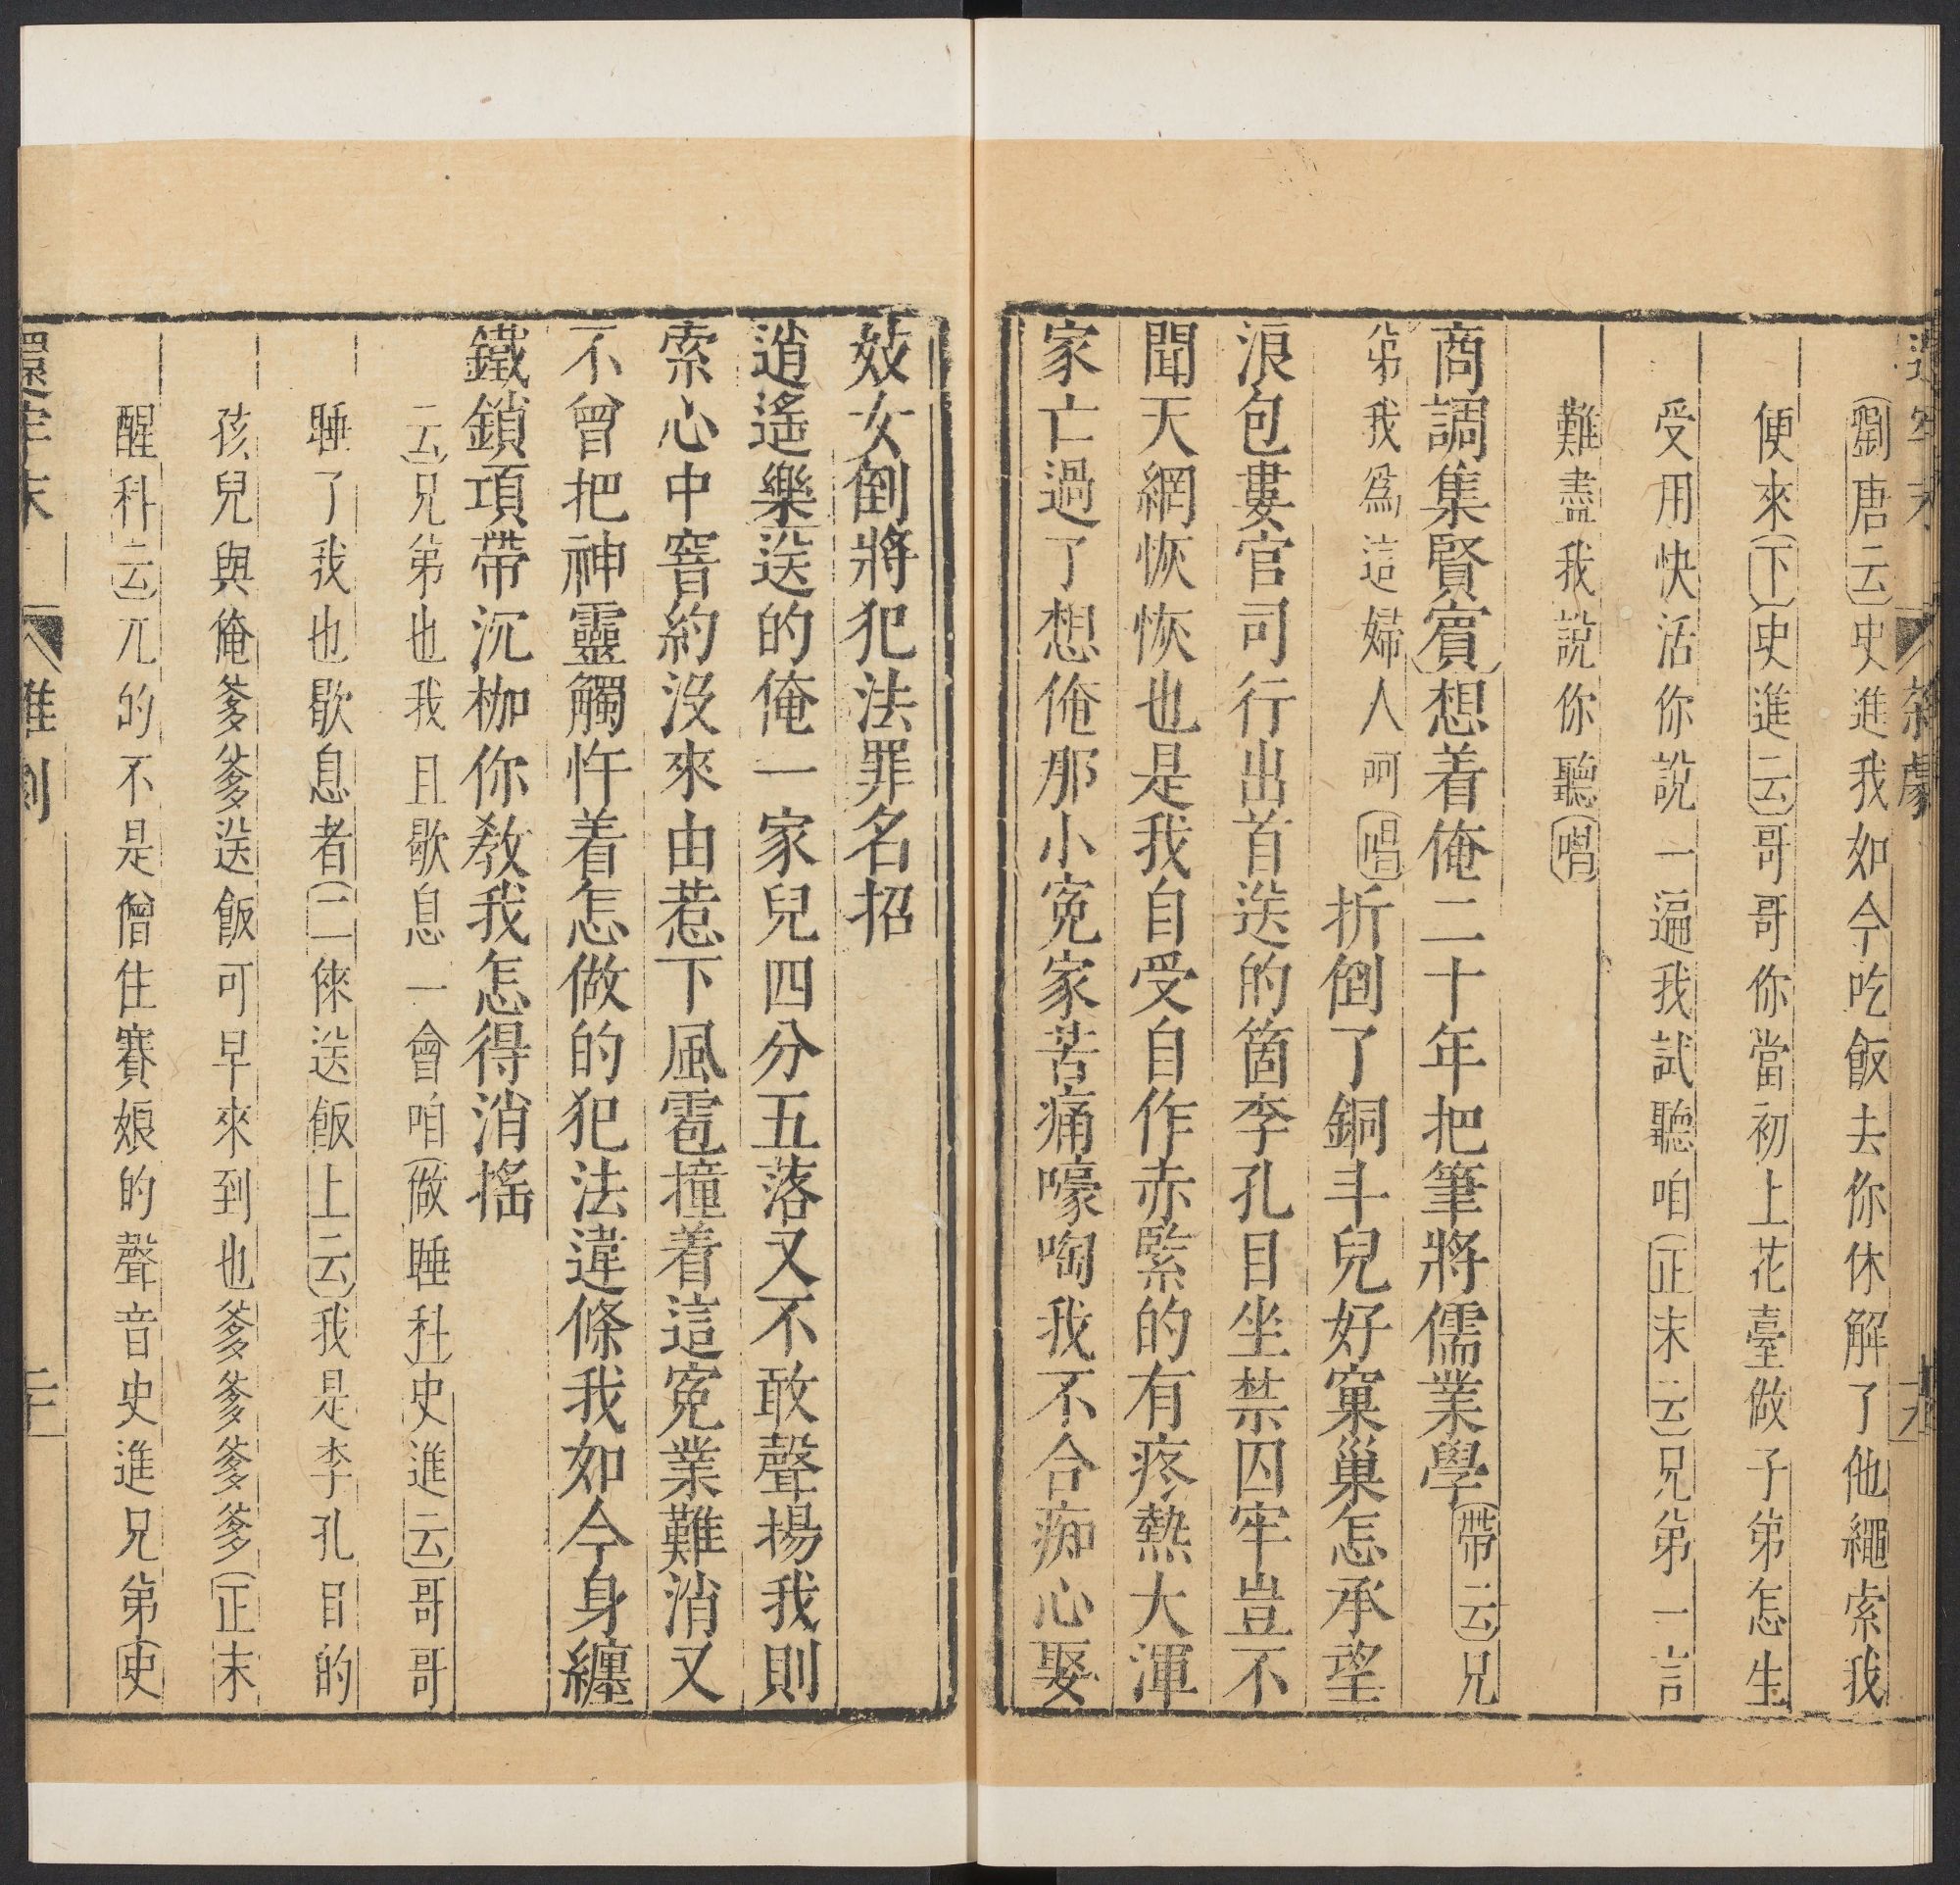 還牢末 雜劇 十九
劉唐云史進我如今吃飯去你休解了他繩索我
便來下史進云哥哥你當初上花臺做子弟怎生
受用快活你說一遍我試聽咱正末云兄弟一言
難盡我說你聽唱
商調集賢賓想着俺二十年把筆將儒業學帶云兄
弟我爲這婦人呵唱折倒了銅斗兒好窠巢怎承望
浪包婁官司行出首送的箇李孔目坐禁囚牢豈不
聞天網恢恢也是我自受自作赤緊的有疼熱大渾
家亡過了想俺那小冤家苦痛嚎啕我不合痴心娶
妓女倒將犯法罪名招
逍遙樂送的俺一家兒四分五落又不敢聲揚我則
索心中窨約沒來由惹下風雹撞着這冤業難消又
不曾把神靈觸忤着怎做的犯法違條我如今身纏
鐵鎖項帶沉枷你教我怎得消摇
云兄弟也我且歇息一會咱做睡科史進云哥哥
睡了我也歇息者二倈送飯上云我是李孔目的
孩兒與俺爹爹送飯可早來到也爹爹爹爹正末
醒科云兀的不是僧住賽娘的聲音史進兄弟史
還牢末 雜劇 二十